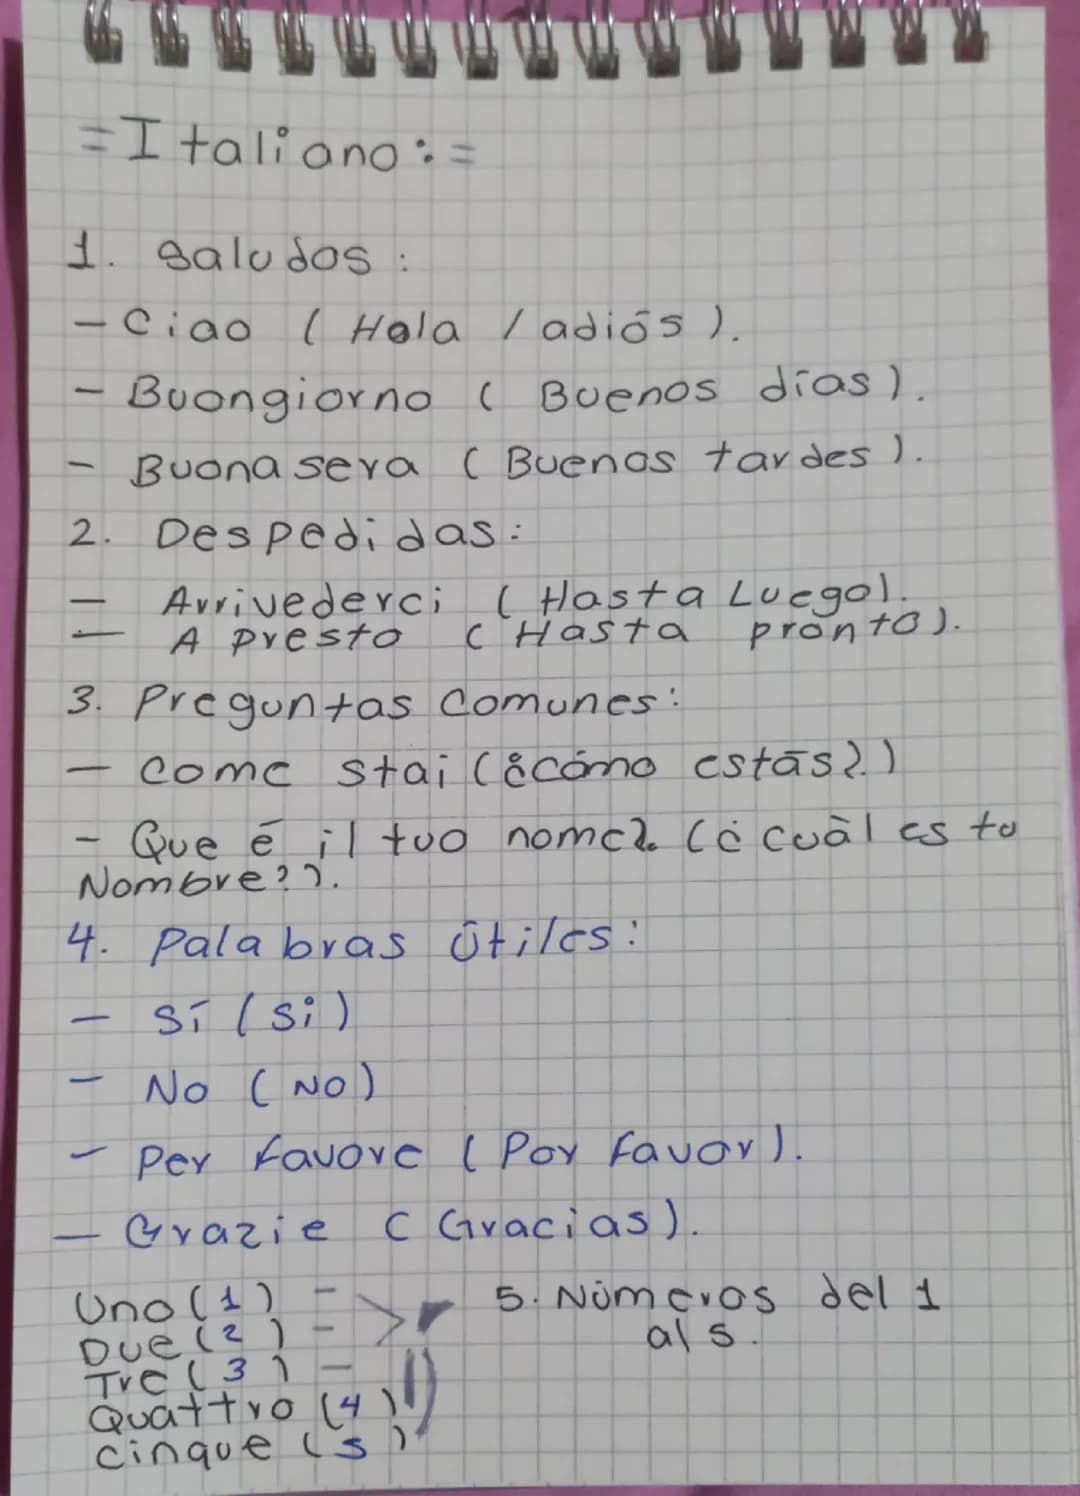 =Italiano:=
1. Saludos:
- Ciao (Hola / adiós).
- Buongiorno (Buenos días).
- Buonasera (Buenas tardes).
2. Despedidas:
- Arrivederci (Hasta Luego).
- A presto (Hasta pronto).
3. Preguntas Comunes:
- Come stai (¿cómo estás?)
- Que é il tuo nome? (¿cuál es tu
Nombre?).
4. Palabras útiles:
- Sí (Si)
- No (No)
- Per favore (Por favor).
- Grazie (Gracias).
5. Números del 1
al 5.
Uno (1) -
Due (2) -
Tre (3) -
Quattro (4)
Cinque (5)